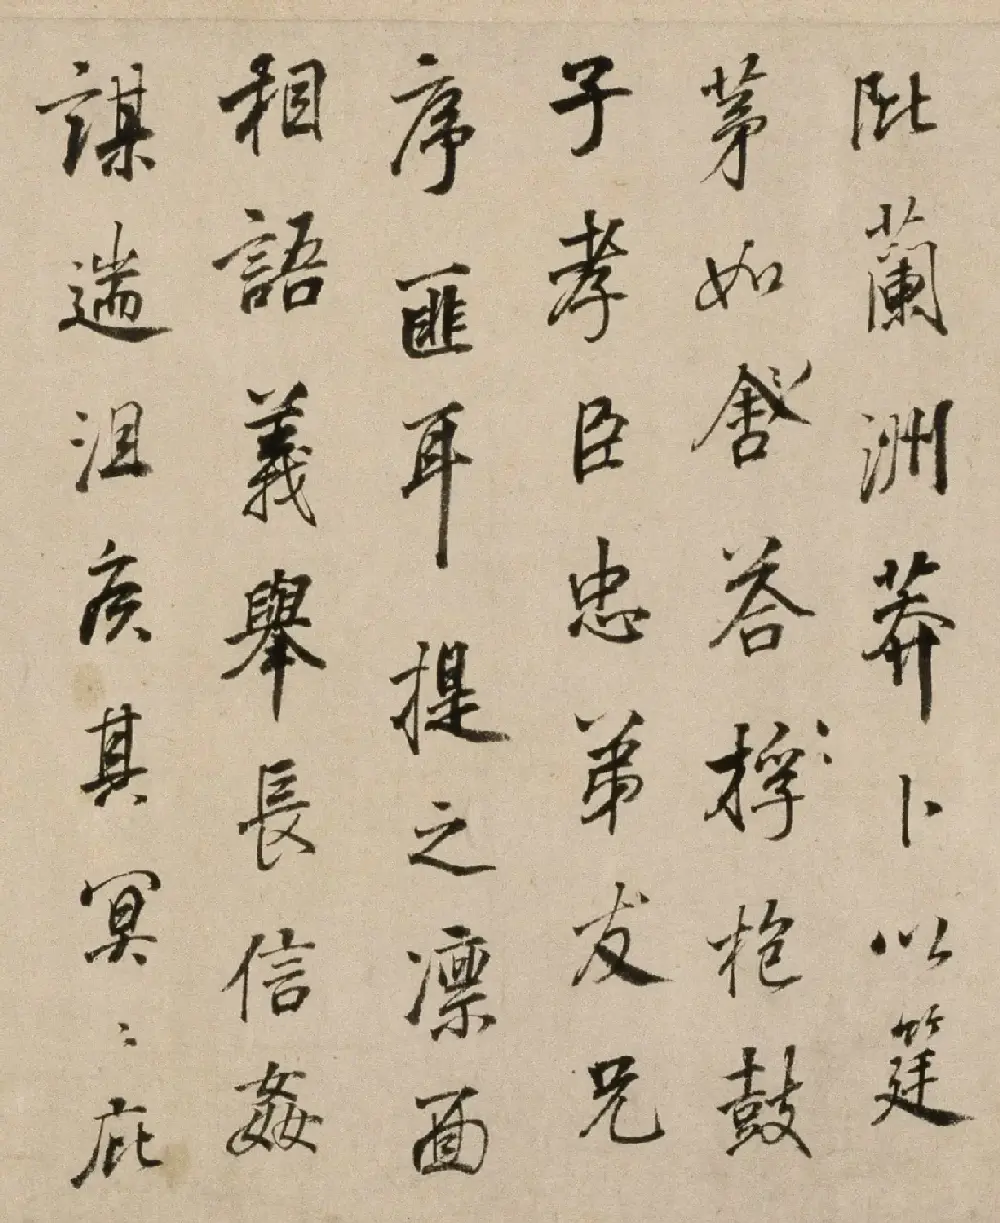 阰蘭洲莽卜以筳
茅如答桴枹鼓
子孝臣忠弟友兄
序匪耳提之凛面
相語義舉長信姦
謀遄沮疾其冥〻庇